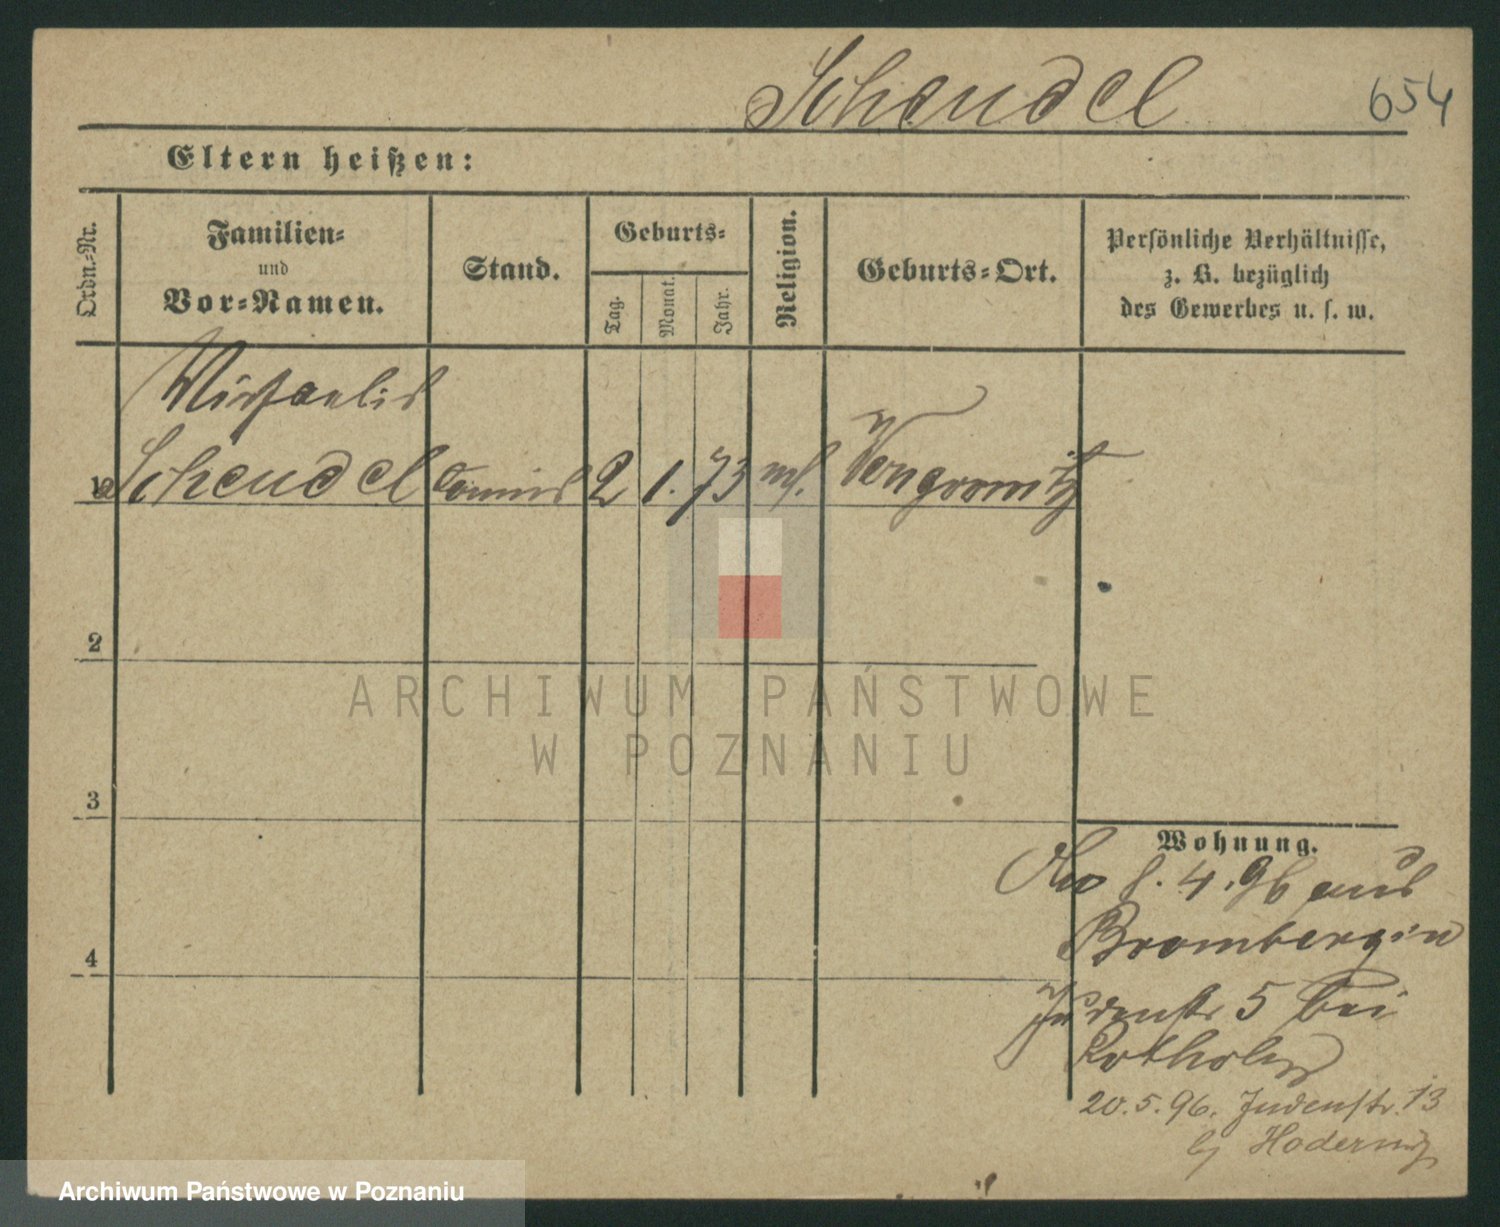 Schendel 654
Eltern heißen:
Ordn.-Nr.
Familien-
und
Vor-Namen.
Stand.
Geburts-
Tag.
Monat.
Jahr.
Religion.
Geburts-Ort.
Persönliche Verhältnisse,
z. B. bezüglich
des Gewerbes u. s. w.
Michaelis
1 Schendel Commis 2 1. 73 mos. Wongrowitz
2
3
4
Wohnung.
4. 96 aus
Bromberg in
Judenstr 5 bei
Rotholz
20. 5. 96. Judenstr. 13
ARCHIWUM PAŃSTWOWE
W POZNANIU
Archiwum Państwowe w Poznaniu